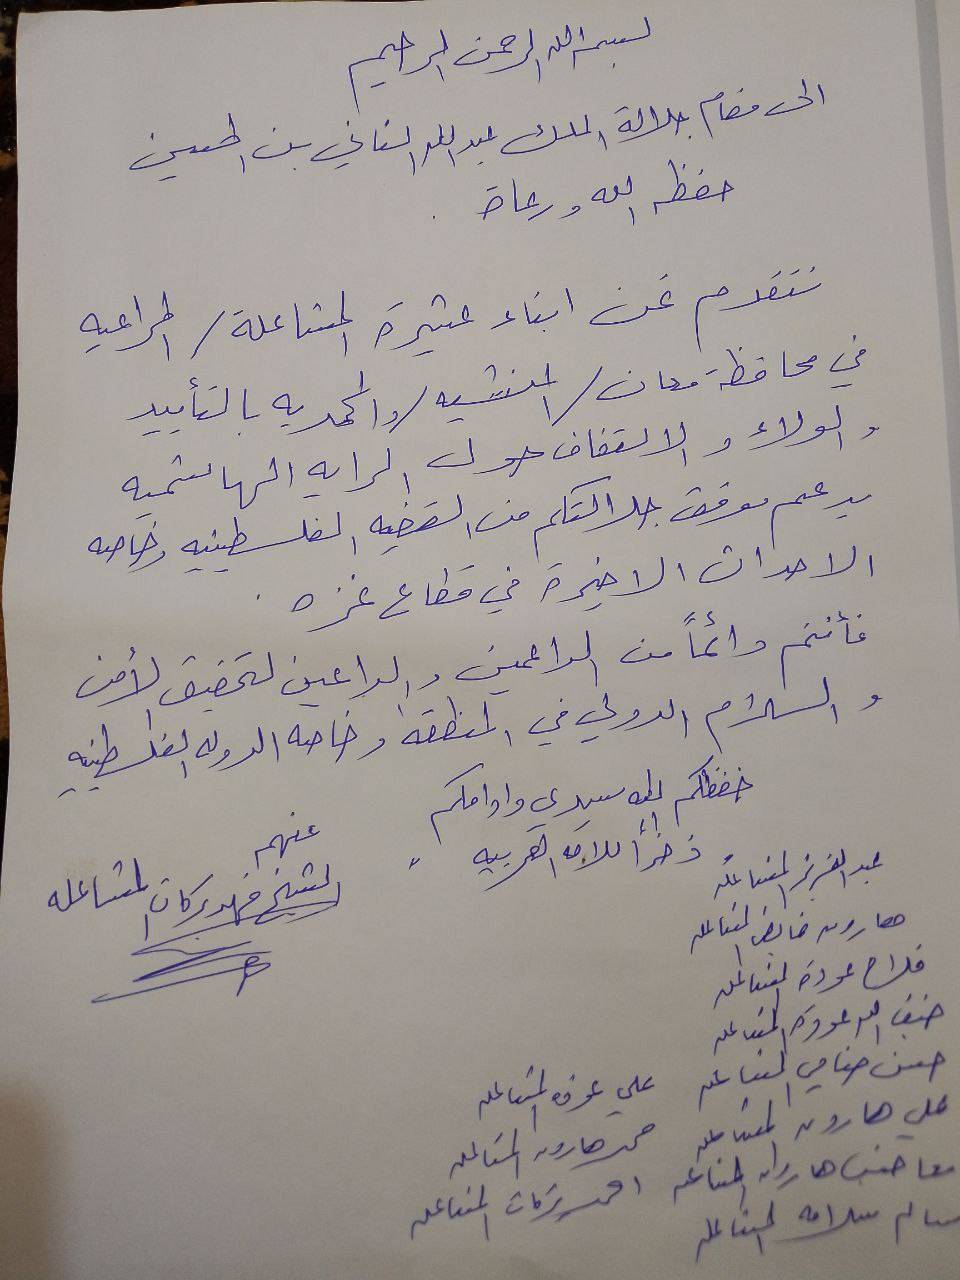 بسم الله الرحمن الرحيم
الى مقام جلالة الملك عبدالله الثاني بن الحسين
حفظه الله ورعاه
نتقدم نحن ابناء عشيرة المشاعلة / المراعيه
في محافظة معان / المنشيه / والمحمديه بالتأييد
والولاء والالتفاف حول الرايه الهاشميه
بدعم موقف جلالتكم من القضيه الفلسطينيه وخاصه
الاحداث الاخيرة في قطاع غزه .
فأنتم دائماً من الداعمين والداعين لتحقيق الأمن
والسلام الدولي في المنطقه وخاصه الدوله الفلسطينيه
حفظكم الله سيدي وادامكم
ذخراً للامه العربيه
عنهم
الشيخ فهد بركات المشاعله
عبد العزيز المشاعله
هارون فايض المشاعله
فلاح عودة المشاعله
ضيف الله عودة المشاعله
حسن المشاعله
علي عوده المشاعله
علي هارون المشاعله
محمد هارون المشاعله
هارون المشاعله
احمد بركات المشاعله
سالم سلامه المشاعله